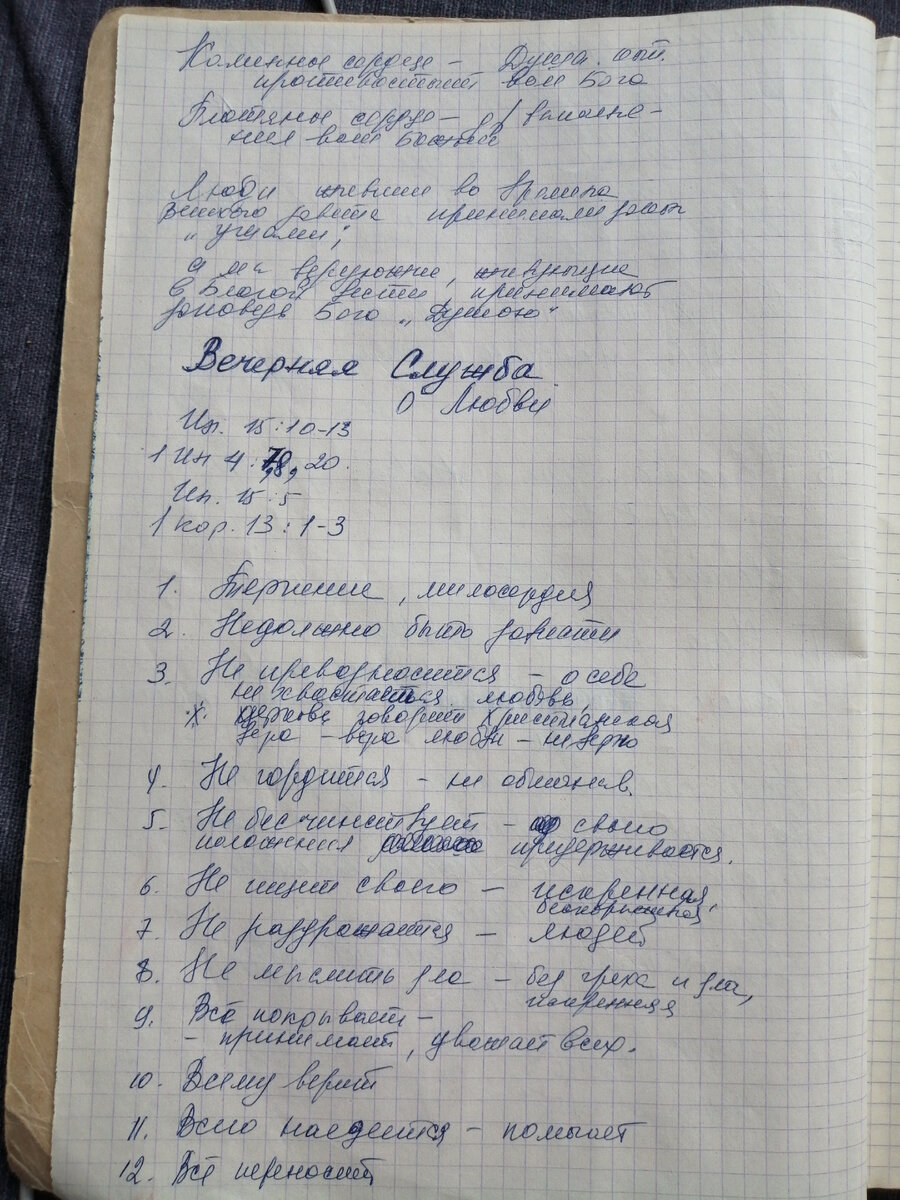 Каминное сердце – Душа
противостоит воле Бога
Плотяное сердце – д/ выполне-
ния воли Божьей
Люди жевшие во времена
Ветхого завета принимали закон
„ ушами",
а мы верующие, живующие
в Благой вести принимают
заповедь Бога „ Душою"
Вечерняя Служба
О Любви
Ин. 15:10-13
1 Ин 4: 7,8, 20.
Ин. 15:5
1 Кор. 13:1-3
1. Терпение, милосердия
2. Недолжно быть зависти
3. Не превозносится – о себе
не хвастаться любовь
* церковь говорит Христианская
вера – вера любви – неверно
4. Не гордится – не
5. Не бесчинствует – своего
положения придерживается.
6. Не ищит своего – искренная,
бескорыстная.
7. Не раздрожается – людей
8. Не мыслить зла – без греха и зла,
искренняя
9. Всё покрывает –
– принимает, уважает всех.
10. Всему верит
11. Всего надеится – помогает
12. Всё переносит